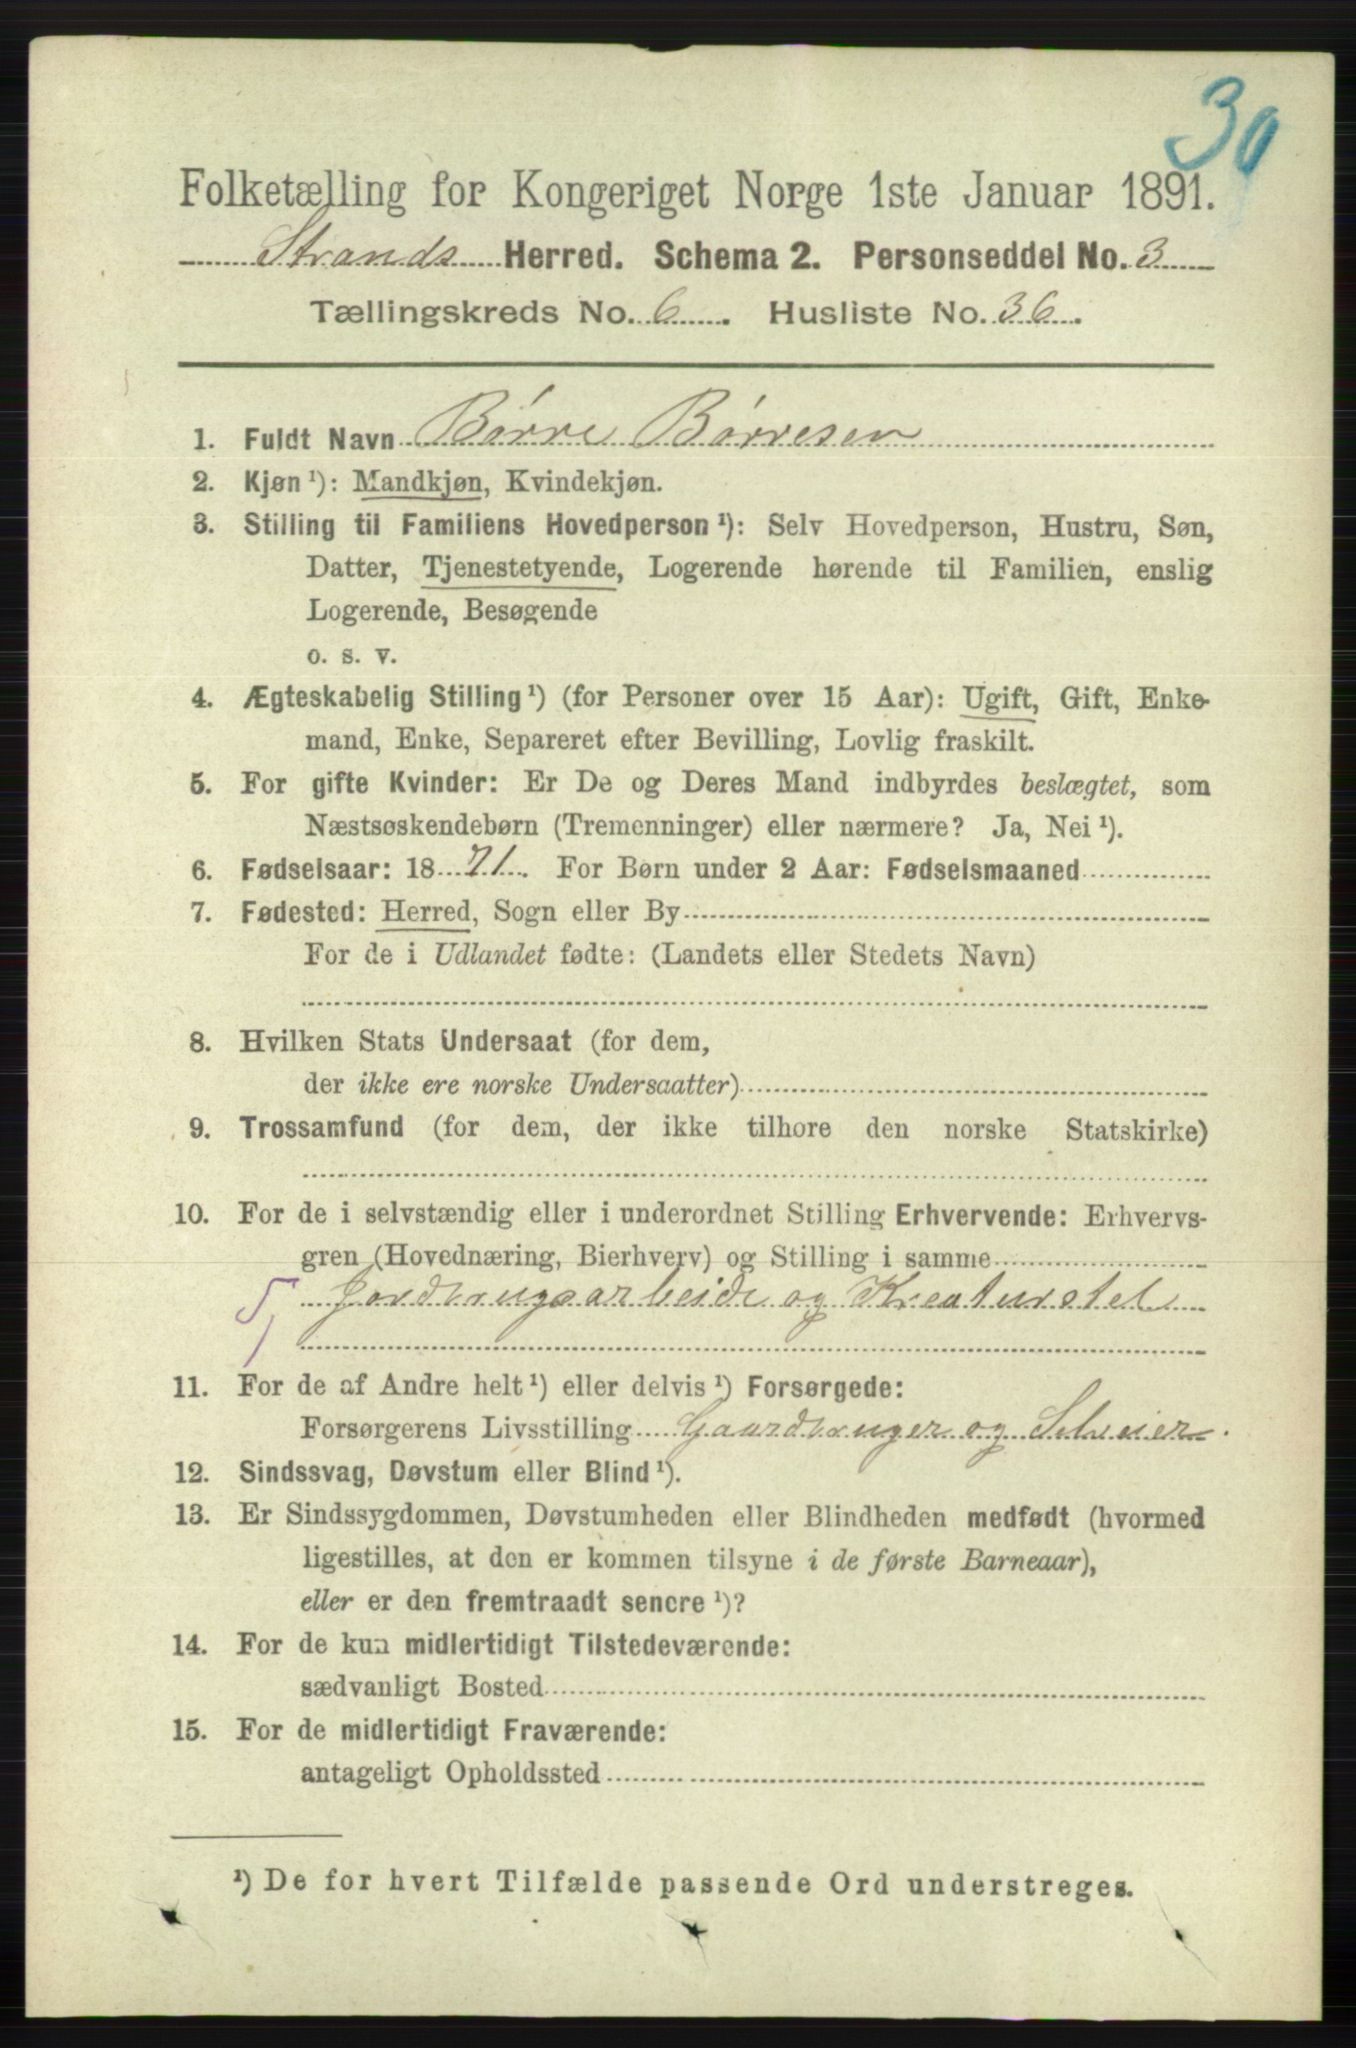 30
Folketælling for Kongeriget Norge 1ste Januar 1891.
Strands Herred. Schema 2. Personseddel No. 3
Tællingskreds No. 6. Husliste No. 36.
1. Fuldt Navn Börre Börresen
2. Kjøn ¹): Mandkjøn, Kvindekjøn.
3. Stilling til Familiens Hovedperson ¹): Selv Hovedperson, Hustru, Søn,
Datter, Tjenestetyende, Logerende hørende til Familien, enslig
Logerende, Besøgende
o. s. v.
4. Ægteskabelig Stilling ¹) (for Personer over 15 Aar): Ugift, Gift, Enke-
mand, Enke, Separeret efter Bevilling, Lovlig fraskilt.
5. For gifte Kvinder: Er De og Deres Mand indbyrdes beslægtet, som
Næstsøskendebørn (Tremenninger) eller nærmere? Ja, Nei ¹).
6. Fødselsaar: 1871. For Børn under 2 Aar: Fødselsmaaned
7. Fødested: Herred, Sogn eller By
For de i Udlandet fødte: (Landets eller Stedets Navn)
8. Hvilken Stats Undersaat (for dem,
der ikke ere norske Undersaatter)
9. Trossamfund (for dem, der ikke tilhøre den norske Statskirke)
10. For de i selvstændig eller i underordnet Stilling Erhvervende: Erhvervs-
gren (Hovednæring, Bierhverv) og Stilling i samme
5, Jordbrugsarbeide og Kreaturstel
11. For de af Andre helt ¹) eller delvis ¹) Forsørgede:
Forsørgerens Livsstilling Gaardbruger og Selveier.
12. Sindssvag, Døvstum eller Blind ¹).
13. Er Sindssygdommen, Døvstumheden eller Blindheden medfødt (hvormed
ligestilles, at den er kommen tilsyne i de første Barneaar),
eller er den fremtraadt senere ¹)?
14. For de kun midlertidigt Tilstedeværende:
sædvanligt Bosted
15. For de midlertidigt Fraværende:
antageligt Opholdssted
¹) De for hvert Tilfælde passende Ord understreges.